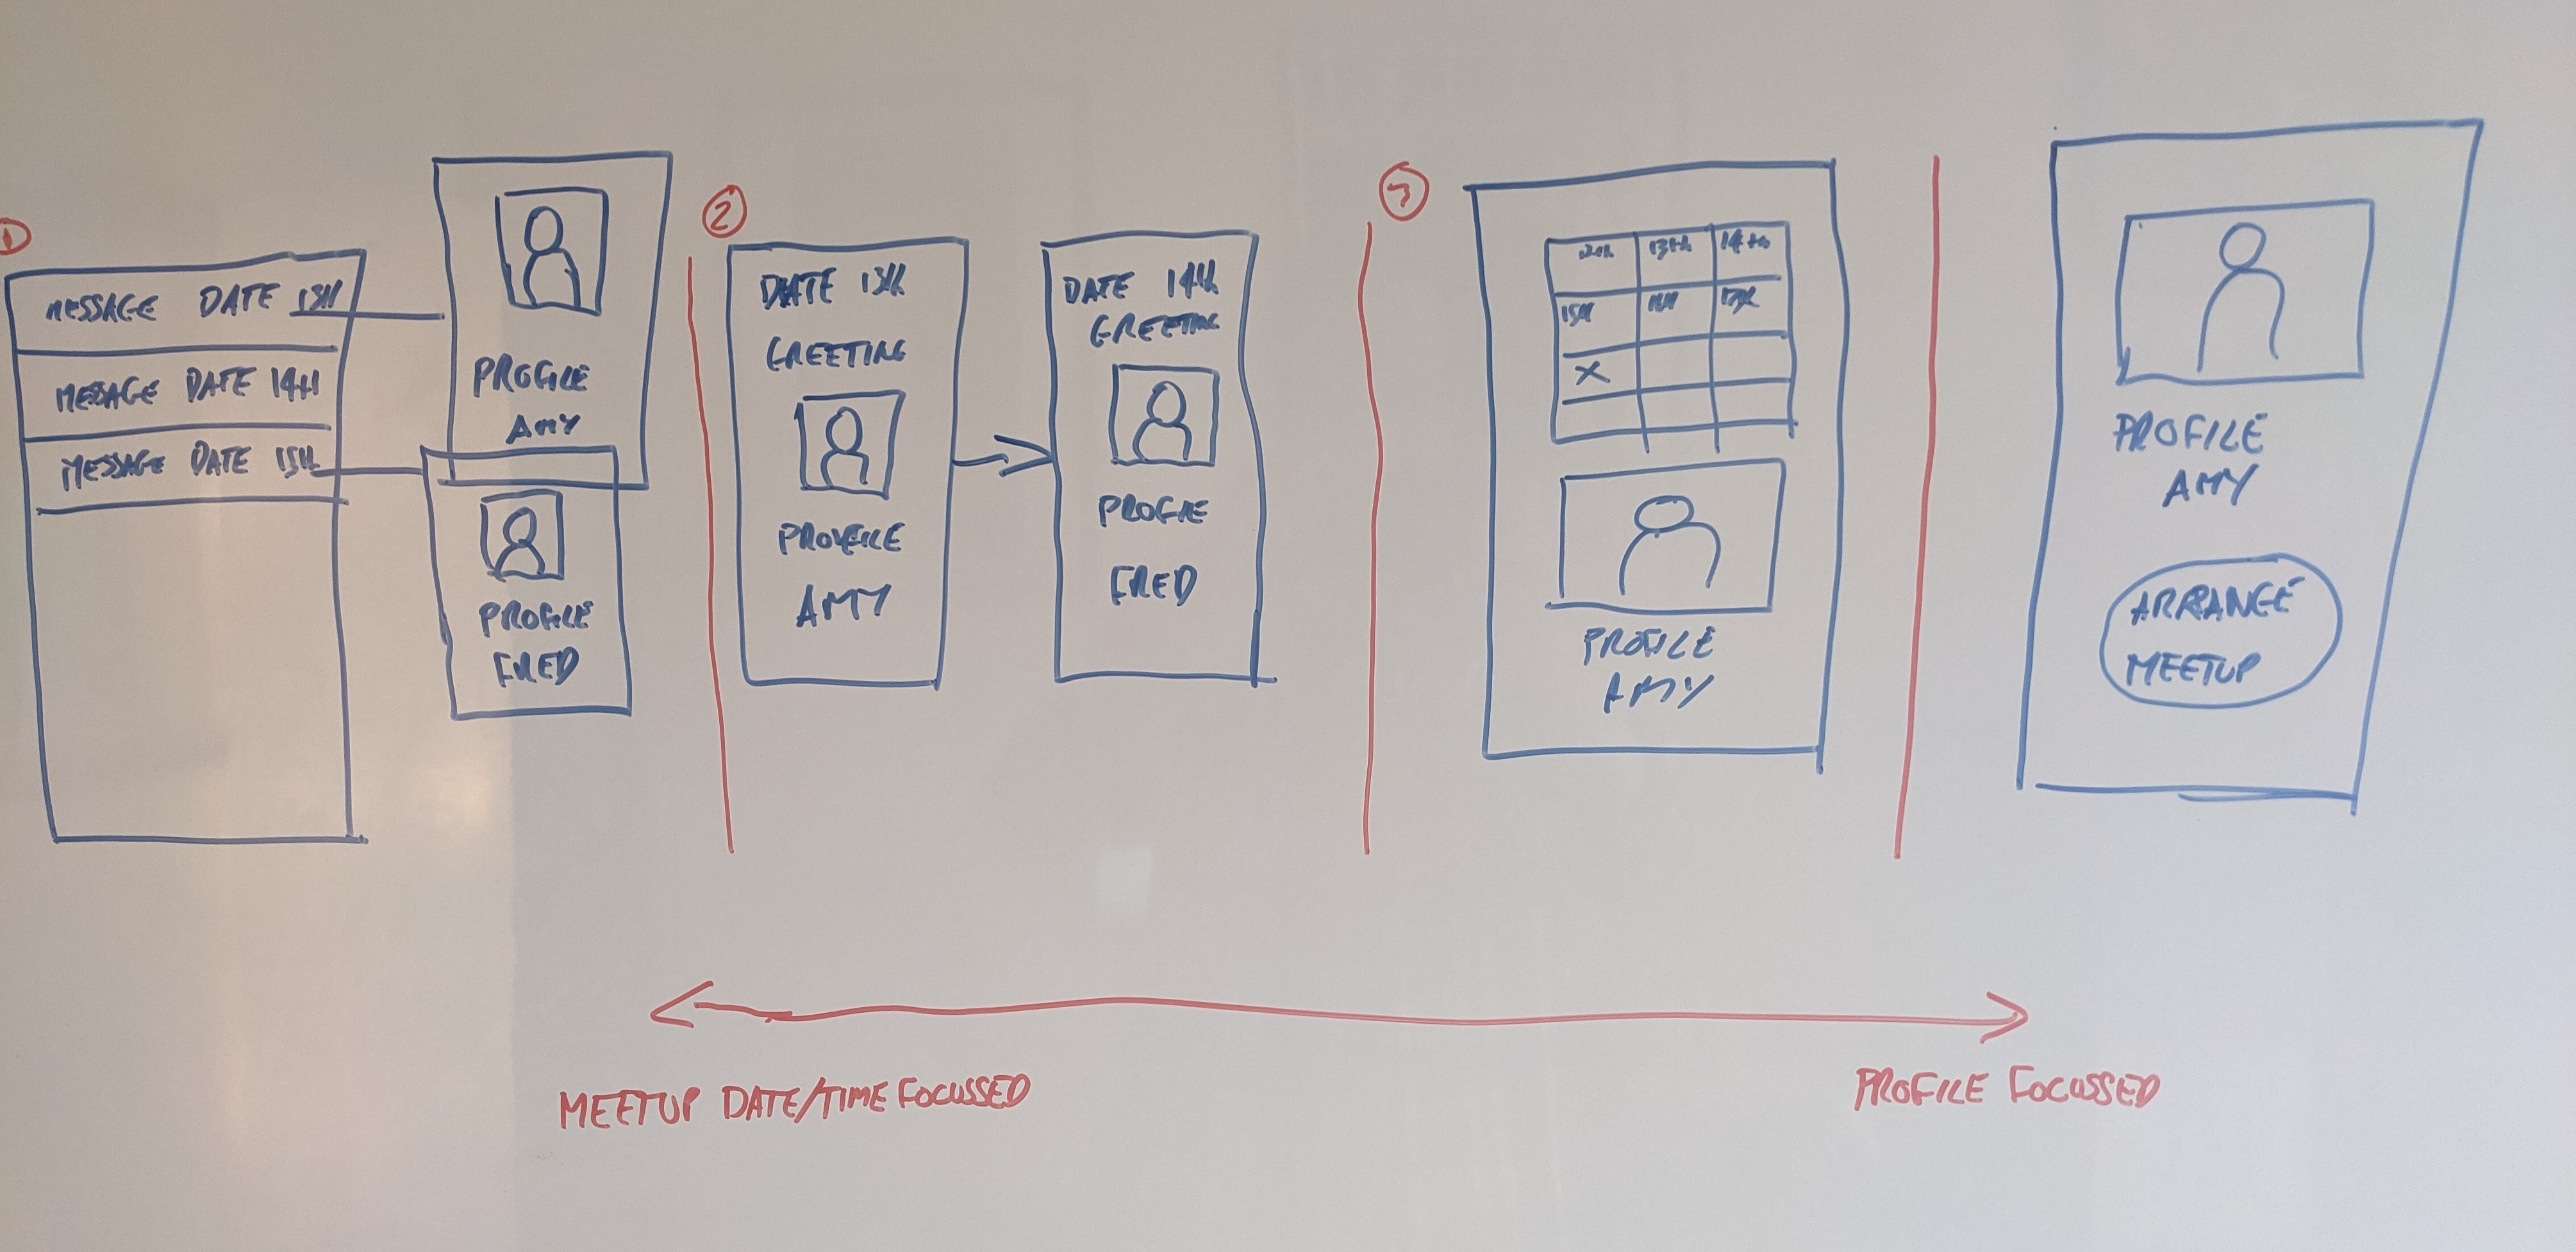 1
MESSAGE DATE 13th
MESSAGE DATE 14th
MESSAGE DATE 15th
PROFILE
AMY
PROFILE
FRED
2
DATE 13th
GREETING
PROFILE
AMY
DATE 14th
GREETING
PROFIE
FRED
3
12th 13th 14th
15th 16th 17th
X
PROFILE
AMY
PROFILE
AMY
ARRANGE
MEETUP
MEETUP DATE/TIME FOCUSSED
PROFILE FOCUSSED